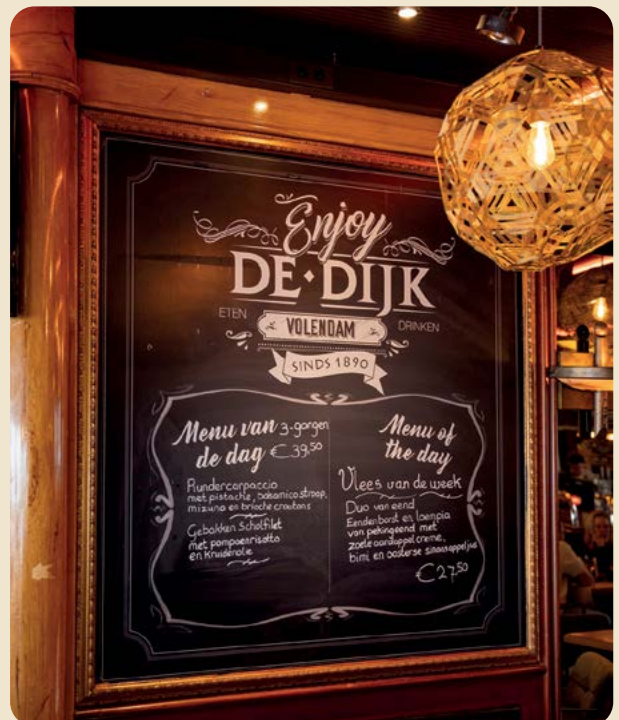 Enjoy
DE · DIJK
ETEN
VOLENDAM
DRINKEN
SINDS 1890
Menu van 3-gangen
de dag € 39,50
Rundercarpaccio
met pistache, balsamico stroop,
mizuna en brioche croutons
Gebakken Scholfilet
met pompoenrisotto
en kruidenolie
Menu of
the day
Vlees van de week
Duo van eend
Eendenborst en loempia
van pekingeend met
zoete aardappel creme,
bimi en oosterse sinaasappel jus
€ 27,50